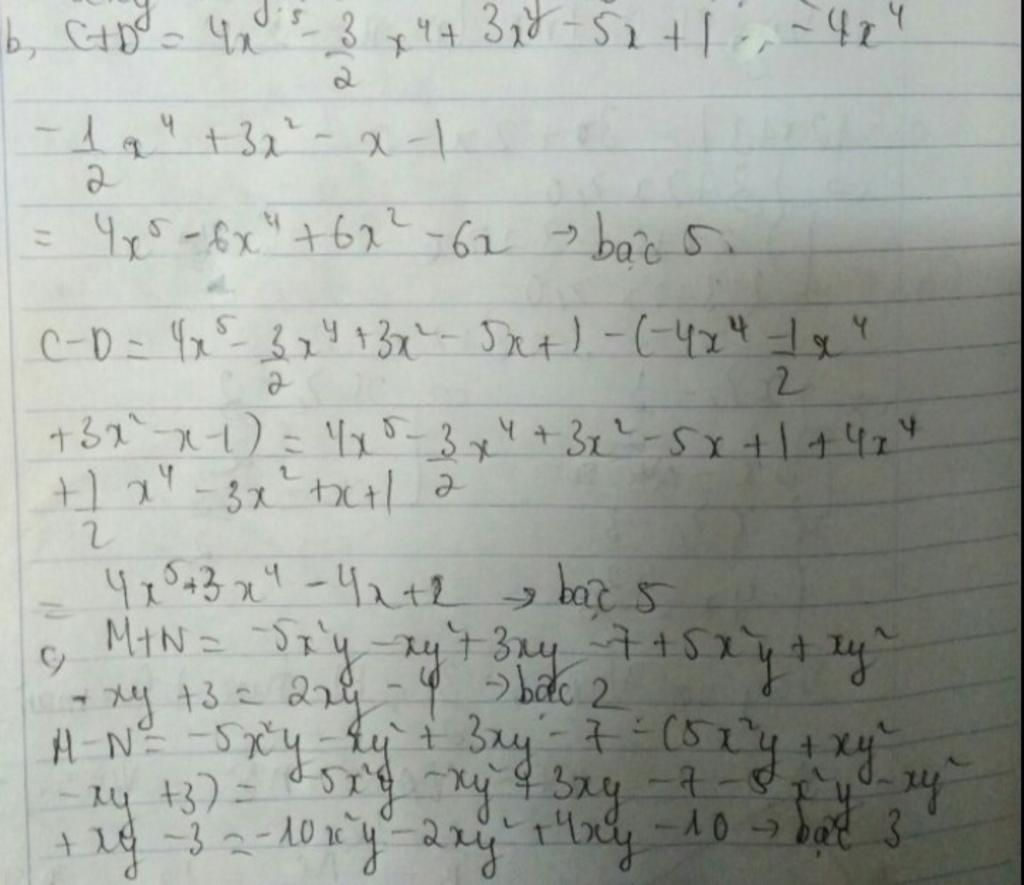 b, C+D = 4x⁵ - 3/2 x⁴ + 3x² - 5x + 1 - 4x⁴
- 1/2 x⁴ + 3x² - x - 1
= 4x⁵ - 6x⁴ + 6x² - 6x → bậc 5.
C-D = 4x⁵ - 3/2 x⁴ + 3x² - 5x + 1 - (-4x⁴ - 1/2 x⁴
+ 3x² - x - 1) = 4x⁵ - 3/2 x⁴ + 3x² - 5x + 1 + 4x⁴
+ 1/2 x⁴ - 3x² + x + 1
= 4x⁵ + 3x⁴ - 4x + 2 → bậc 5
c, M+N = -5x²y - xy² + 3xy - 7 + 5x²y + xy²
- xy + 3 = 2xy - 4 → bậc 2
M-N = -5x²y - xy² + 3xy - 7 - (5x²y + xy²
- xy + 3) = 5x²y - xy² + 3xy - 7 - 5x²y - xy²
+ xy - 3 = -10x²y - 2xy² + 4xy - 10 → bậc 3